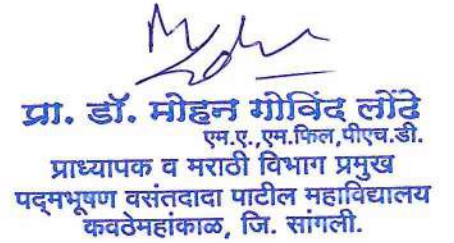 प्रा. डॉ. मोहन गोविंद लोंढे
एम.ए.,एम.फिल,पीएच.डी.
प्राध्यापक व मराठी विभाग प्रमुख
पद्मभूषण वसंतदादा पाटील महाविद्यालय
कवठेमहांकाळ, जि. सांगली.